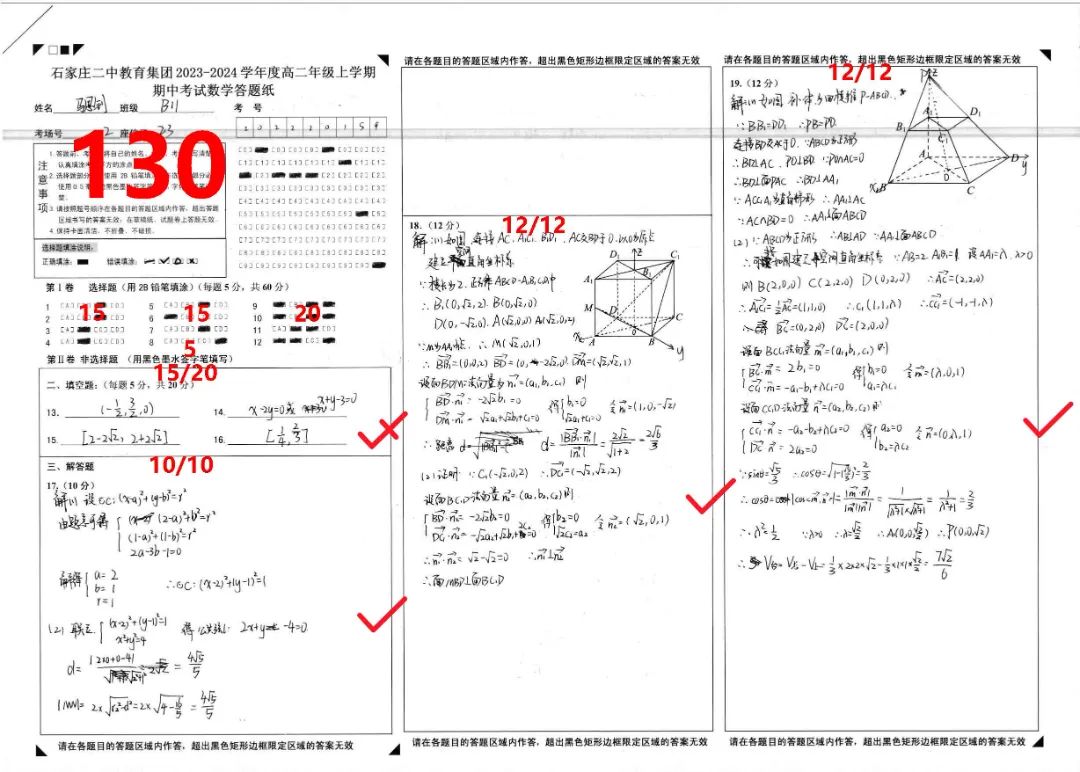 石家庄二中教育集团2023-2024学年度高二年级上学期
期中考试数学答题纸
姓名
班级 B11
考 号
考场号 2 座位 23
130
注意事项
3. 请按照题号顺序在各题目的答题区域内作答，超出答题
区域书写的答案无效；在草稿纸、试题卷上答题无效。
4. 保持卡面清洁，不折叠、不破损。
选择题填涂说明：
正确填涂：
错误填涂：
第Ⅰ卷 选择题（用2B铅笔填涂）（每题5分，共60分）
15
15
20
5
第Ⅱ卷 非选择题 （用黑色墨水签字笔填写）
15/20
二、填空题：（每题5分，共20分）
13. (-1/2, 3/2, 0)
14. x-2y=0或 x+y-3=0
15. [2-2√2, 2+2√2]
16. [1/4, 2/3]
三、解答题
10/10
17.（10分）
解(1) 设⊙C: (x-a)²+(y-b)²=r²
由题意可得
(2-a)²+b²=r²
(1-a)²+(1-b)²=r²
2a-3b-1=0
解得
a=2
b=1
r=1
∴⊙C: (x-2)²+(y-1)²=1
(2) 联立
(x-2)²+(y-1)²=1
x²+y²=4
得 公共弦: 2x+y-4=0
= 4√5/5
|MN|=2×√r²-d²=2×√4-16/5=4√5/5
请在各题目的答题区域内作答，超出黑色矩形边框限定区域的答案无效
请在各题目的答题区域内作答，超出黑色矩形边框限定区域的答案无效
18.（12分）
12/12
解：(1) 如图，连接AC, A₁C₁, B₁D₁, AC交BD于O,以O为原点
建立空间直角坐标系
∴B₁(0,√2,2) B(0,√2,0)
D(0,-√2,0) A(√2,0,0) A₁(√2,0,2)
∴M(√2,0,1)
∴BB₁=(0,0,2) BD=(0,-2√2,0) DM=(√2,√2,1)
设面BDM法向量为n₁=(a₁,b₁,c₁) 则
BD·n₁=-2√2b₁=0
DM·n₁=√2a₁+√2b₁+c₁=0
得
b₁=0
√2a₁+c₁=0
令n₁=(1,0,-√2)
∴距离 d=|BB₁·n₁|/|n₁|=2√2/√1+2=2√6/3
(2)证明：∵C₁(-√2,0,2) ∴DC₁=(-√2,√2,2)
设面BC₁D法向量n₂=(a₂,b₂,c₂)则
BD·n₂=-2√2b₂=0
DC₁·n₂=-√2a₂+√2b₂+2c₂=0
得
b₂=0
√2c₂=a₂
令n₂=(√2,0,1)
∴n₁·n₂=√2-√2=0 ∴n₁⊥n₂
∴面MBD⊥面BC₁D
请在各题目的答题区域内作答，超出黑色矩形边框限定区域的答案无效
请在各题目的答题区域内作答，超出黑色矩形边框限定区域的答案无效
19.（12分）
12/12
解：(1)如图，补体为四棱锥P-ABCD.
∵BB₁=DD₁ ∴PB=PD
连接BD交AC于O ∵ABCD为正方形
∴BD⊥AC PO⊥BD ∵PO∩AC=O
∴BD⊥面PAC ∴BD⊥AA₁
∵ACC₁A₁为直角梯形 ∴AA₁⊥AC
∵AC∩BD=O ∴AA₁⊥面ABCD
(2) ∵ABCD为正方形 ∴AB⊥AD ∵AA₁⊥面ABCD
∴可如图建立空间直角坐标系 ∵AB=2 A₁B₁=1 设AA₁=λ, λ>0
则B(2,0,0) C(2,2,0) D(0,2,0) ∴AC=(2,2,0)
∴A₁C₁=1/2AC=(1,1,0) ∴C₁(1,1,λ) ∴CC₁=(-1,-1,λ)
BC=(0,2,0) DC=(2,0,0)
设面BCC₁法向量m=(a₁,b₁,c₁) 则
BC·m=2b₁=0
CC₁·m=-a₁-b₁+λc₁=0
得
b₁=0
a₁=λc₁
令m=(λ,0,1)
设面CC₁D法向量n=(a₂,b₂,c₂)则
CC₁·n=-a₂-b₂+λc₂=0
DC·n=2a₂=0
得
a₂=0
b₂=λc₂
令n=(0,λ,1)
∵sinθ=√5/3 ∴cosθ=√1-(√5/3)²=2/3
∴cosθ=|cos<m,n>|=|m·n|/|m||n|=1/√λ²+1×√λ²+1=1/λ²+1=2/3
∴λ²=1/2 ∵λ>0 ∴λ=√2/2 ∴A₁(0,0,√2/2) ∴P(0,0,√2)
=1/3×2×2×√2-1/3×1×1×√2/2=7√2/6
请在各题目的答题区域内作答，超出黑色矩形边框限定区域的答案无效